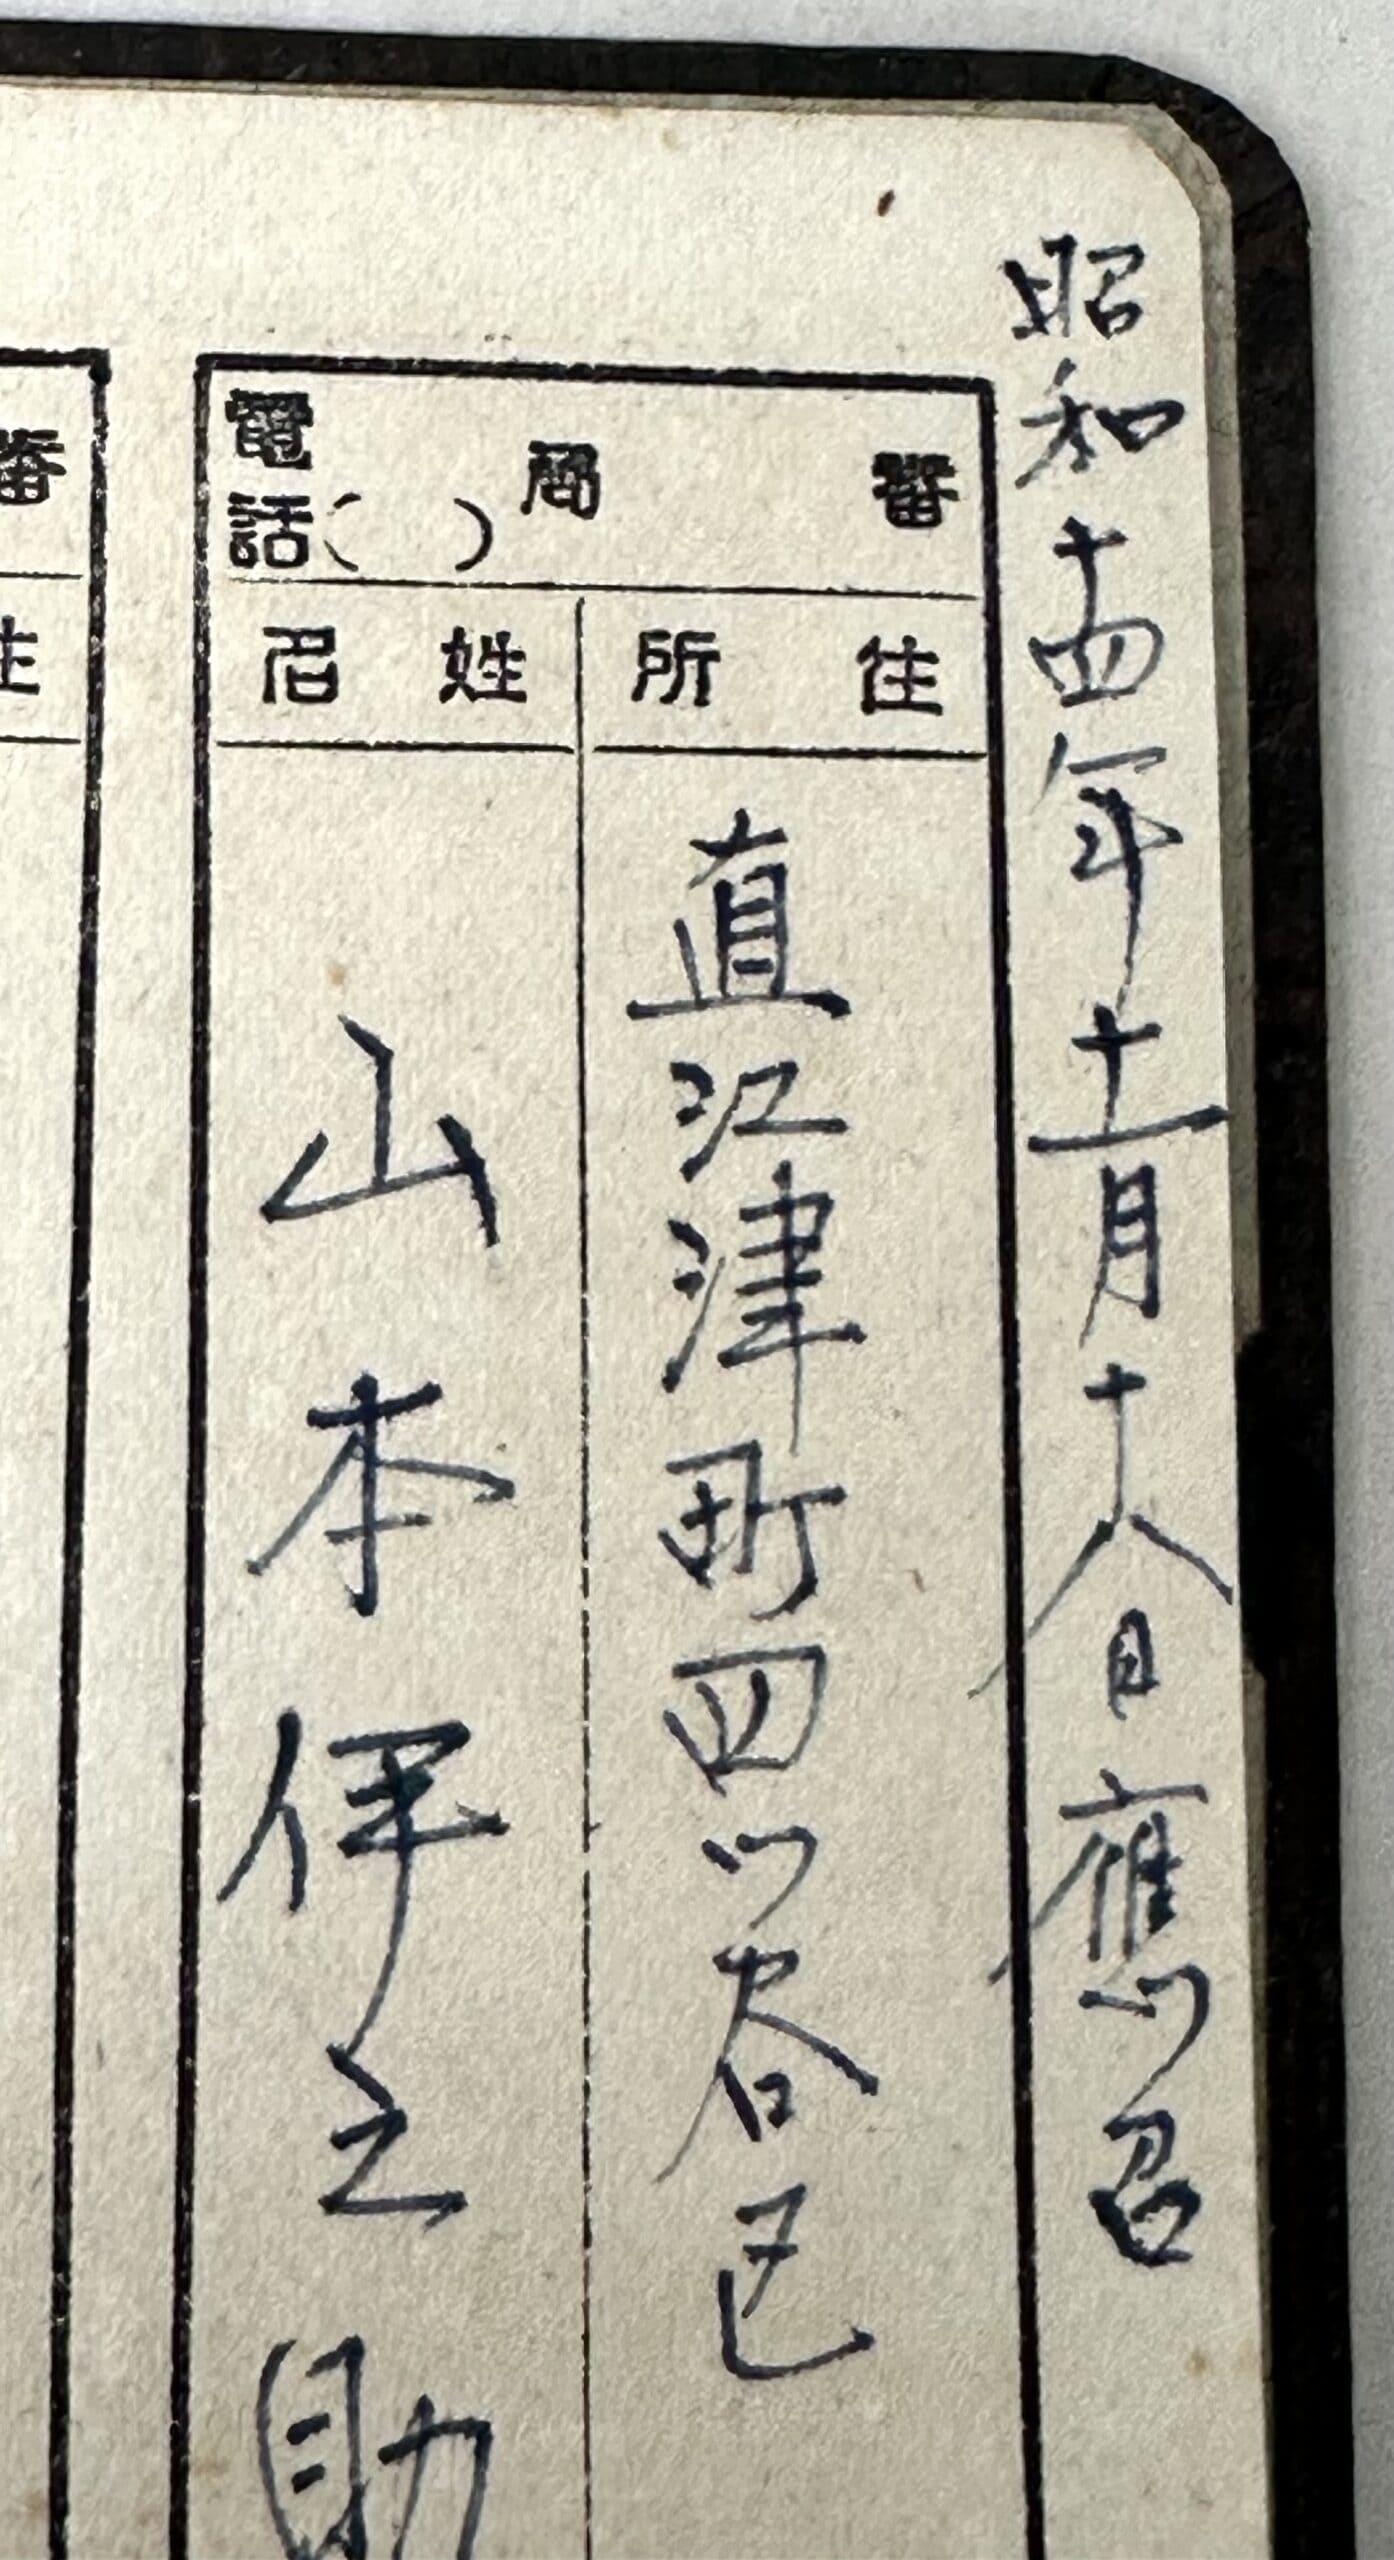 昭和十四年十一月十八日應召
電話( ) 局 番
住所
姓名
直江津町四ツ谷
山本伊之助
番
住